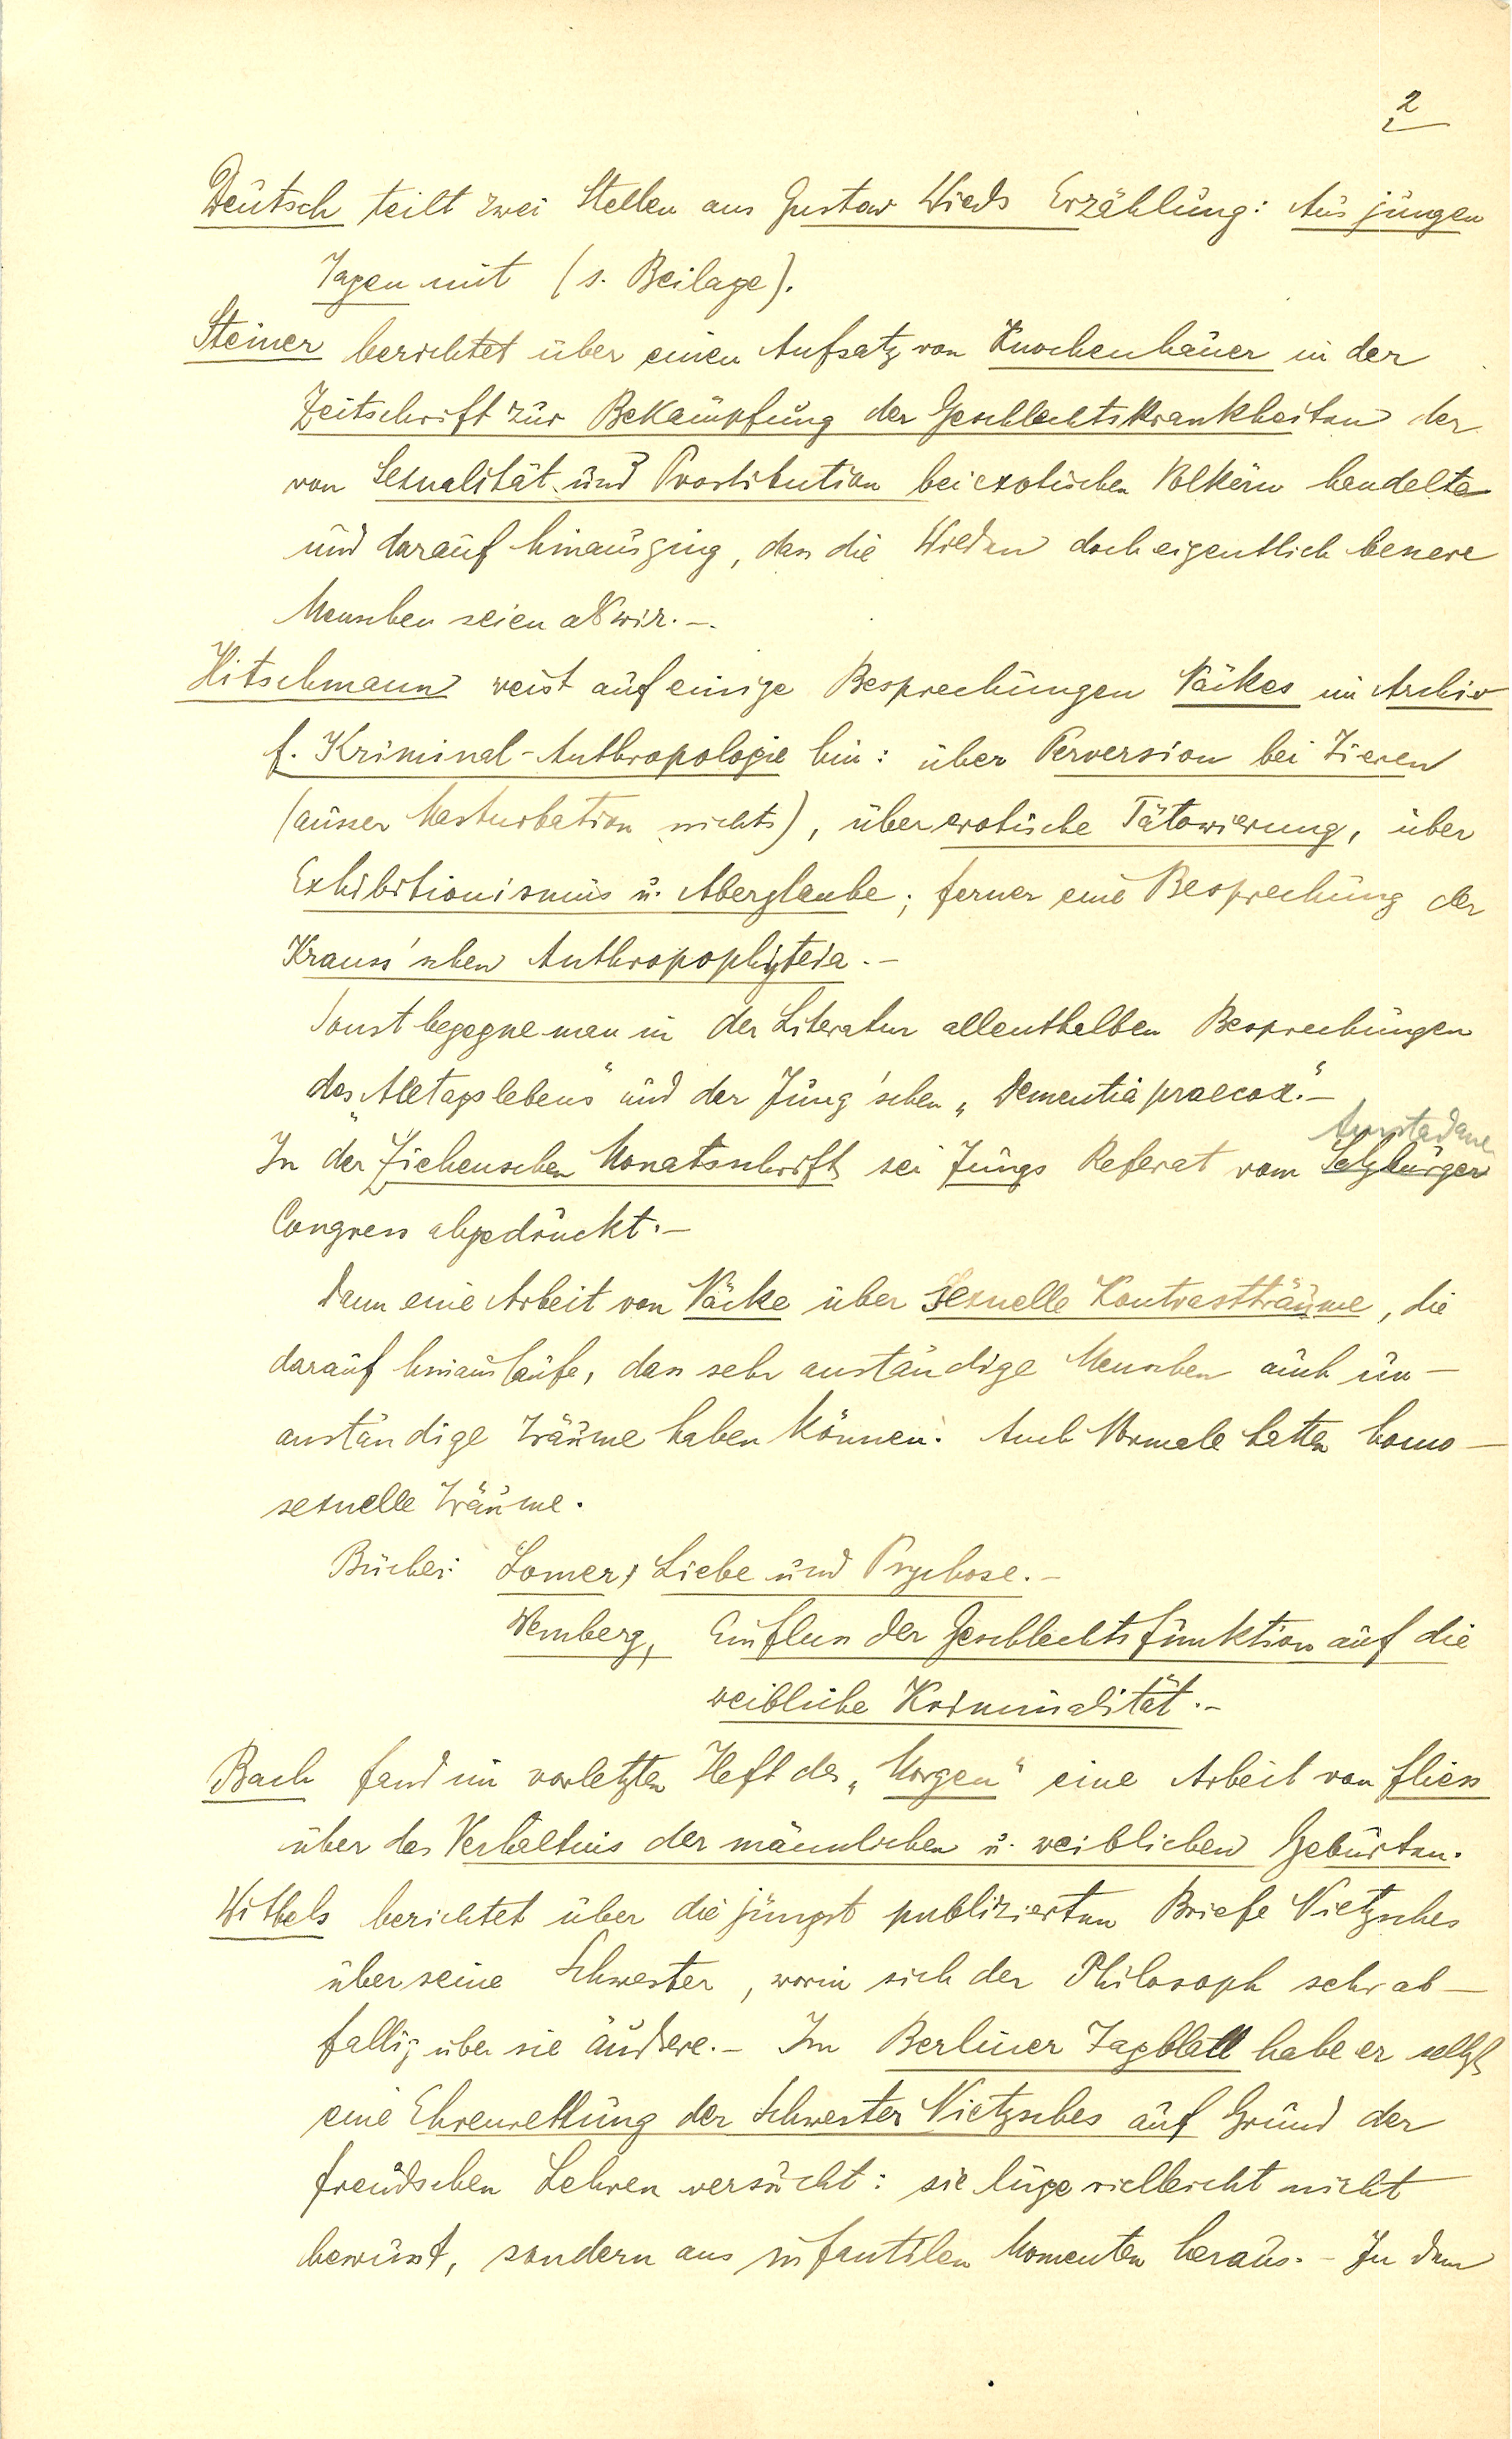 2
Deutsch teilt zwei Stellen aus Gustav Wieds Erzählung: Aus jungen
Tagen mit (s. Beilage).
Steiner berichtet über einen Aufsatz von Knochenhauer in der
Zeitschrift zur Bekämpfung der Geschlechtskrankheiten der
von Sexualität und Prostitution bei exotischen Völkern handelte
und darauf hinausging, dass die Wilden doch eigentlich bessere
Menschen seien als wir.–
Hitschmann weist auf einige Besprechungen Näckes im Archiv
f. Kriminal-Anthropologie hin: über Perversion bei Tieren
(ausser Masturbation nichts), über erotische Tätowierung, über
Exhibitionismus u. Aberglaube; ferner eine Besprechung der
Krauss'schen Anthropophyteia.–
Sonst begegne man in der Literatur allenthalben Besprechungen
des „Alltagslebens“ und der Jung'schen „Dementia praecox“.–
Amstadamer
In der Ziehenschen Monatsschrift sei Jungs Referat vom Salzburger
Congress abgedruckt.–
Dann eine Arbeit von Näcke über sexuelle Kontrastträume, die
darauf hinauslaufe, dass sehr anständige Menschen auch un-
anständige Träume haben können. Auch Normale hätten homo-
sexuelle Träume.
Bücher: Lomer, Liebe und Psychose.–
Wemberg, Einfluss der Geschlechtsfunktion auf die
weibliche Kriminalität.–
Bach fand im vorletzten Heft des „Morgen“ eine Arbeit von Fliess
über das Verhältnis der männlichen u. weiblichen Geburten.
Wittels berichtet über die jüngst publizierten Briefe Nietzsches
über seine Schwester, worin sich der Philosoph sehr ab-
fällig über sie äußere.– Im Berliner Tagblatt habe er selbst
eine Ehrenrettung der Schwester Nietzsches auf Grund der
freudschen Lehren versucht: sie lüge vielleicht nicht
bewusst, sondern aus infantilen Momenten heraus.– In dem